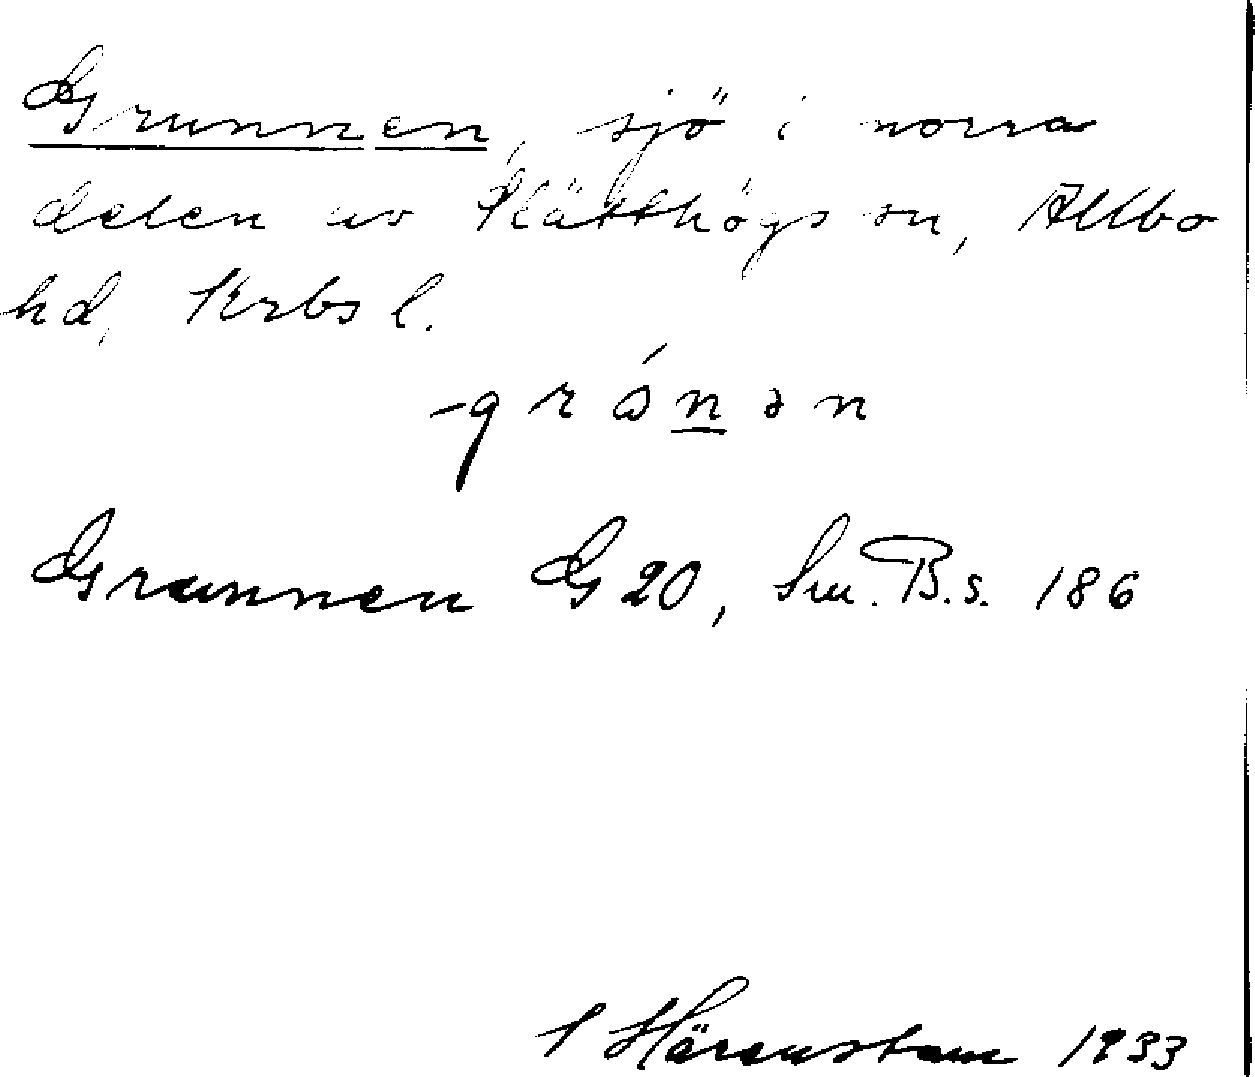 Grunnen, sjö i norra
delen av Slätthögs sn, Allbo
hd, Krbs l.
-grónən
Grunnen G 20, Sm. B. s. 186
S Härenstam 1933